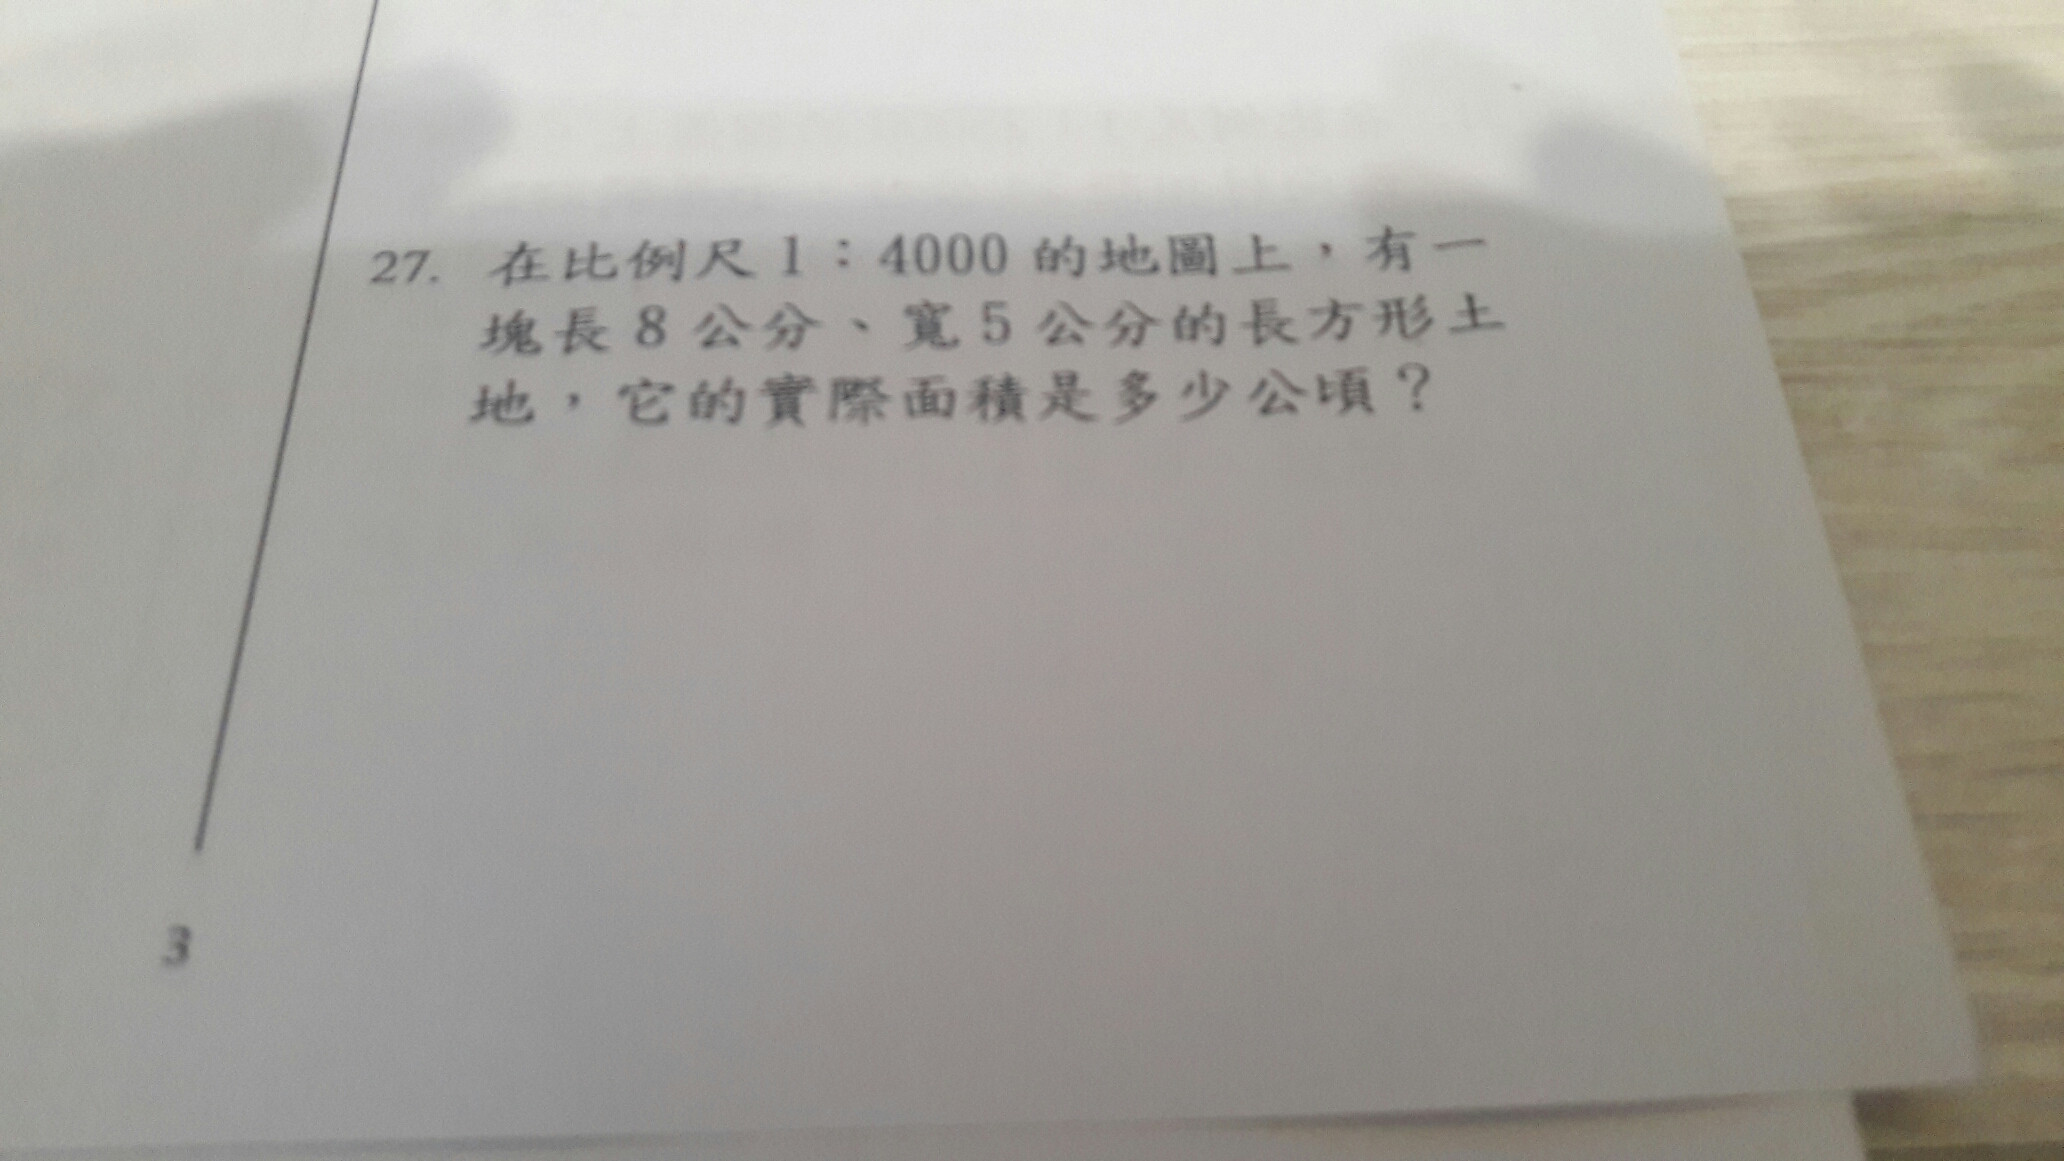 27. 在比例尺 1：4000 的地圖上，有一
塊長 8 公分、寬 5 公分的長方形土
地，它的實際面積是多少公頃？
3